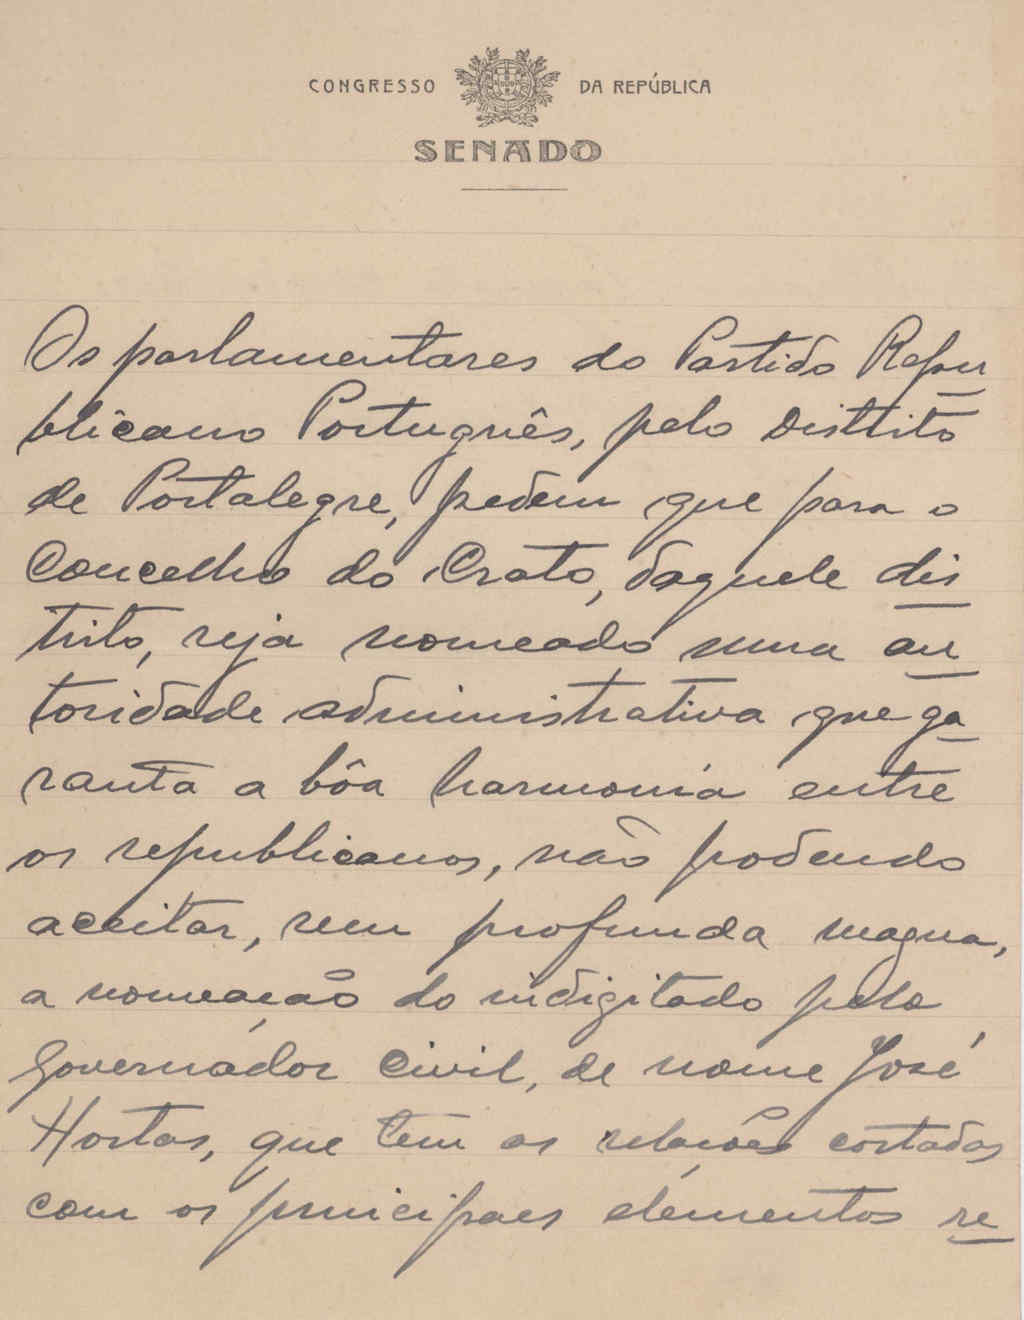 CONGRESSO DA REPÚBLICA
SENADO
Os parlamentares do Partido Repu
blicano Português, pelo Distrito
de Portalegre, pedem que para o
Concelho do Crato, daquele dis
trito, seja nomeado uma au
toridade administrativa que ga
ranta a bôa harmonia entre
os republicanos, não podendo
aceitar, sem profunda magua,
a nomeação do indigitado pelo
Governador Civil, de nome José
Hortas, que tem as relações cortadas
com os principaes elementos re